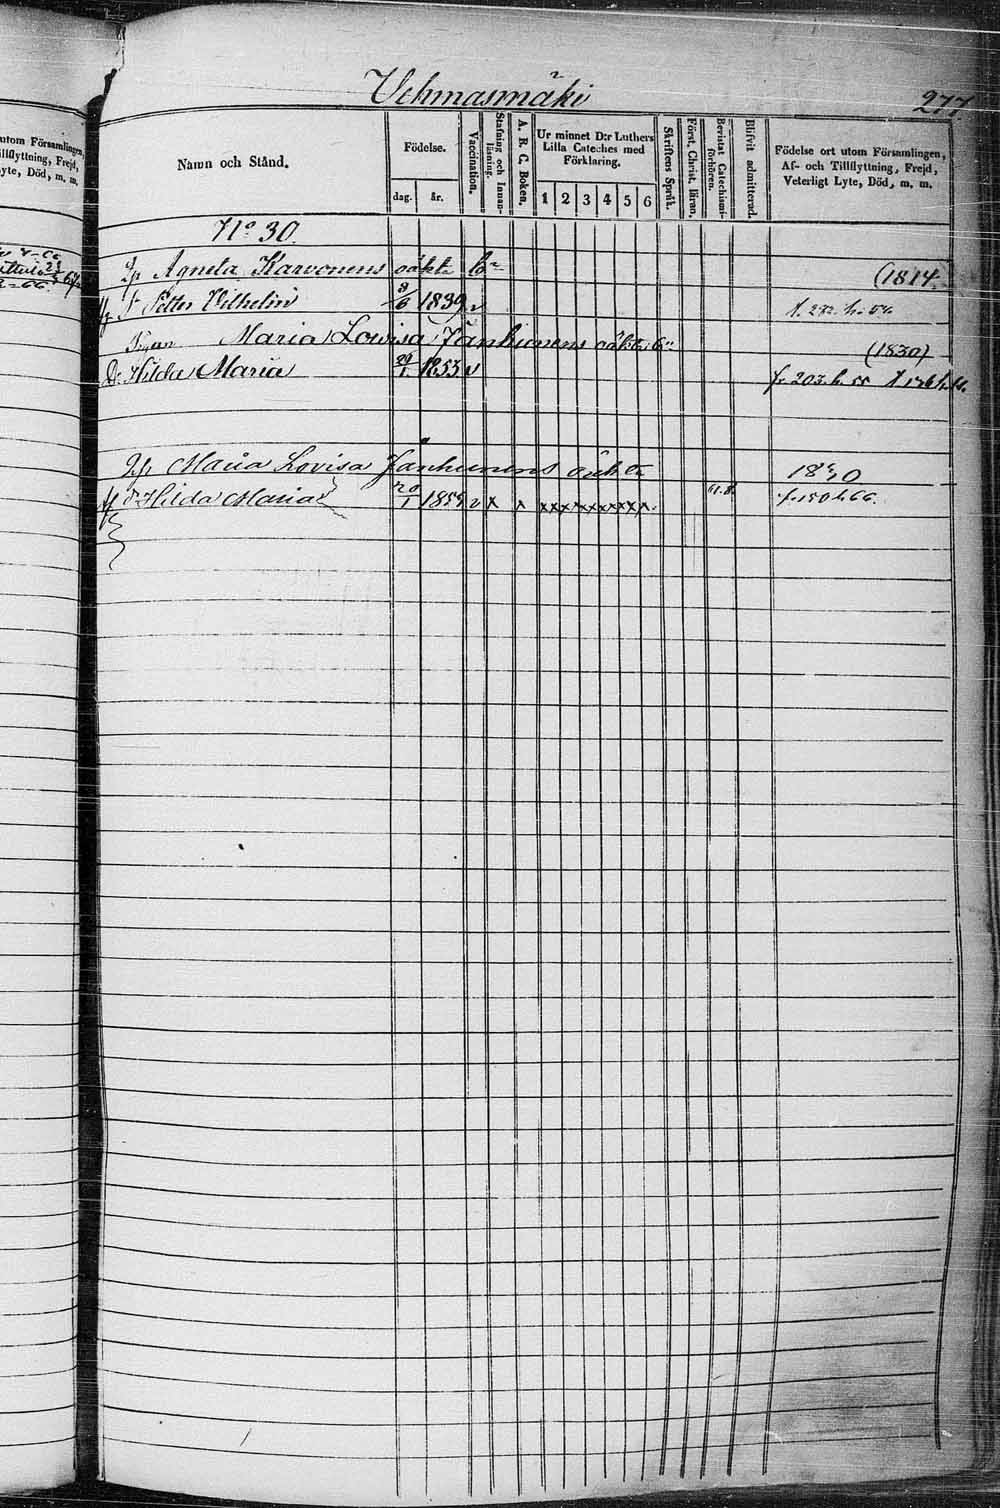 Vehmasmäki 277.
utom Församlingen,
Tillflyttning, Frejd,
Lyte, Död, m. m.
Namn och Stånd.
Födelse.
dag. år.
Vaccination.
Stafning och Innanläsning.
A. B. C. Boken.
Ur minnet D:r Luthers
Lilla Cateches med
Förklaring.
1 2 3 4 5 6
Skriftens Språk.
Först. Christ. läran.
Bevistat Catechismiförhören.
Blifvit admitterad.
Födelse ort utom Församlingen,
Af- och Tillflyttning, Frejd,
Veterligt Lyte, Död, m. m.
No 30.
Agneta Karvonens oäkta (1814.
Petter Vilhelm 8/6 1839 v
Maria Lovisa Janhunens oäkta (1830)
Dr Hilda Maria 20/1 1855 v fr 203. h. 55
Maria Lovisa Janhunens oäkta 1830
Hilda Maria 20/1 1855 v x x xxxxxxxxxx 150 h 66.